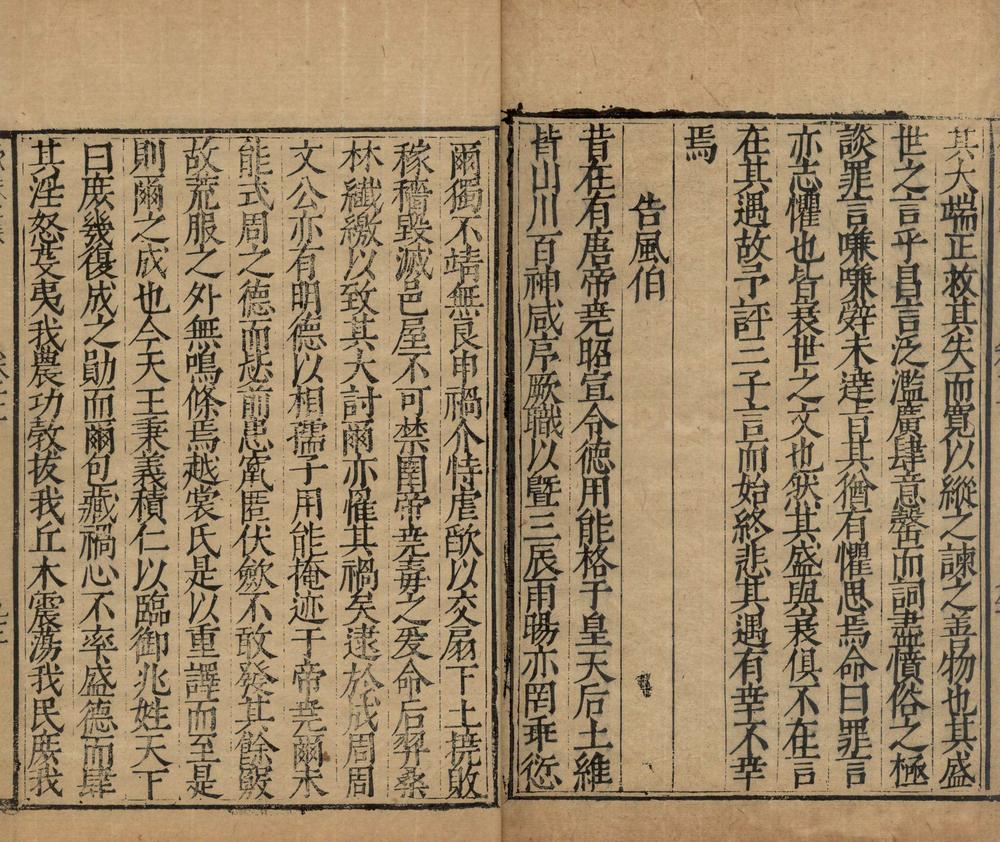 其大端正救其失而寬以縱之諫之善物也其盛
世之言乎昌言泛濫廣肆意罄而詞盡憤俗之極
談罪言嗛嗛辤未達旨其猶有懼思焉命曰罪言
亦志懼也皆衰世之文也然其盛與衰俱不在言
在其遇故予評三子言而始終悲其遇有幸不幸
焉
告風伯
昔在有唐帝尭昭宣令德用能格于皇天后土維
皆山川百神咸序厥職以暨三辰雨暘亦罔乖愆
爾獨不靖無良申禍介恃虐歊以交扇下土撓敗
稼穡毀滅邑屋不可禁圉帝尭毒之爰命后羿桑
林纎繳以致其大討爾亦懼其禍矣逮於成周周
文公亦有明德以相孺子用能掩迹于帝尭爾未
能式周之德而惩前患寘匿伏歛不敢發其餘竅
故荒服之外無鳴條焉越裳氏是以重譯而至是
則爾之成也今天王秉義積仁以臨御兆姓天下
曰庶幾復成之勛而爾包藏禍心不率盛德而肆
其淫怒芟夷我農功敹拔我丘木震蕩我民庶我